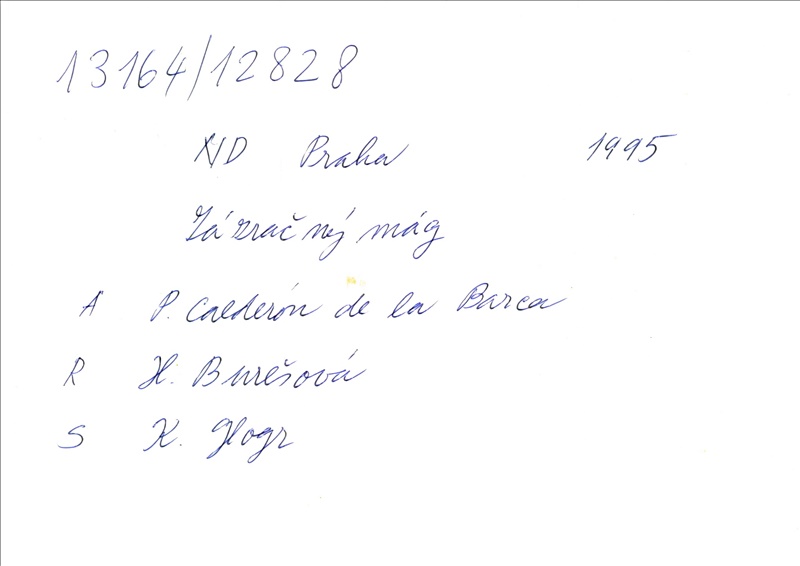 13164/12828
ND Praha 1995
Zázračný mág
A P. Calderón de la Barca
R H. Burešová
S K. Glogr